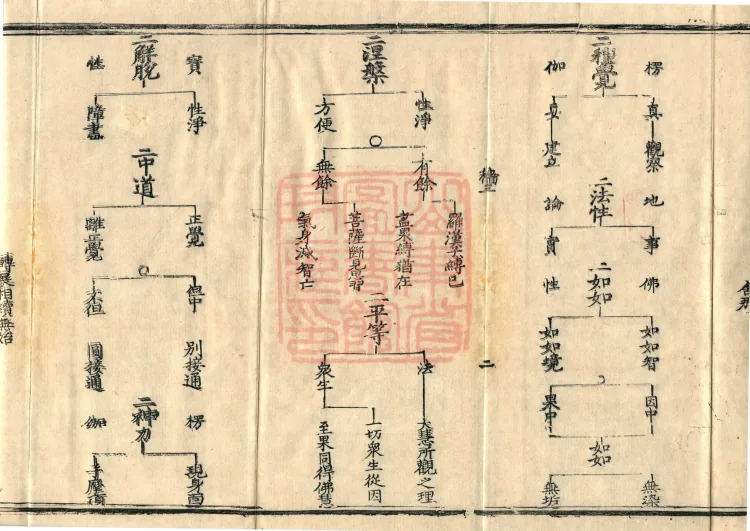 二種覺
楞
伽
真 觀察
妄 建立
二法性
地
論
事
實
二如如
佛
性
如如智
如如境
因中
果中
如如
無染
無垢
二
二涅槃
性淨
方便
有餘
無餘
羅漢子縛已
盡果縛猶在
菩薩斷見思
氣身滅智亡
二平等
法
眾生
大慧所觀之理
一切眾生從因
至果同得佛慧
二解脫
寶
性
性淨
障盡
二中道
正覺
離正覺
但中
不但
別接通
圓接通
二神力
楞
伽
現身面
手摩頂
轉展相續無始